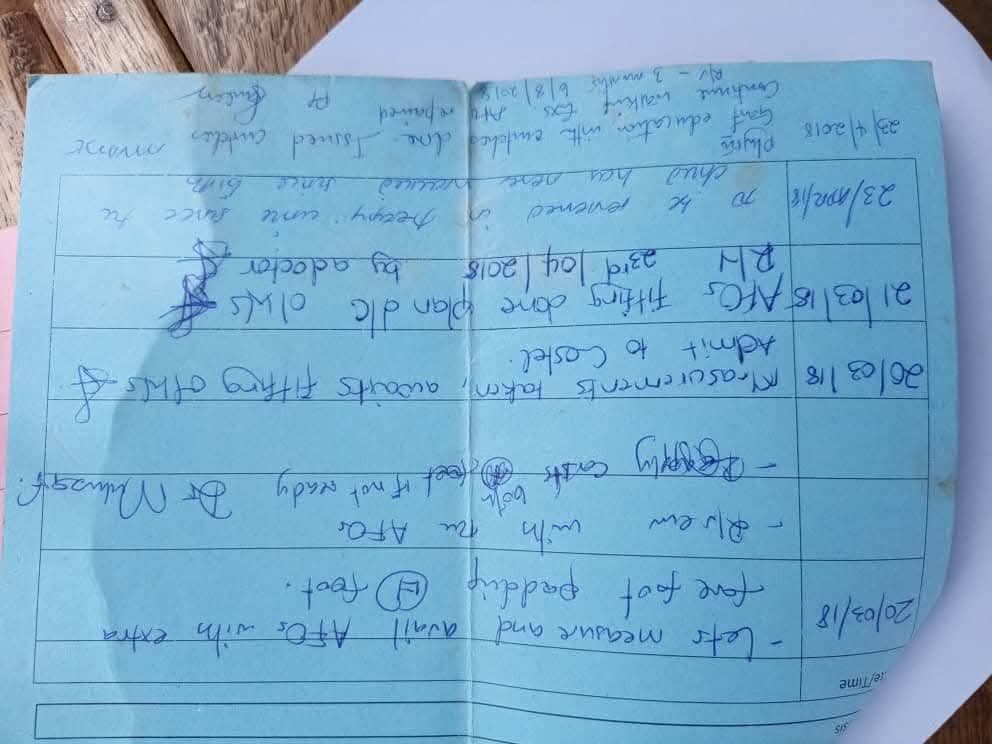 20/03/18 - Lets measure and avail AFOs with extra
fore foot padding (H) foot.
- R/v ew with the AFOs
- Reapply casts both feet if not ready Dr
20/03/18 Measurements taken, awaits fitting o/wls
Admit to Castel.
21/03/18 AFOs fitting done plan d/c o/wls
R/V 23rd/04/2018 by a doctor
23/APR/18 To be reviewed in
child has been since birth
23/4/2018 Physio done Issued crutches
Gait education with crutches PT
Continue walking Exs repaired
R/v - 3 months 6/8/2018